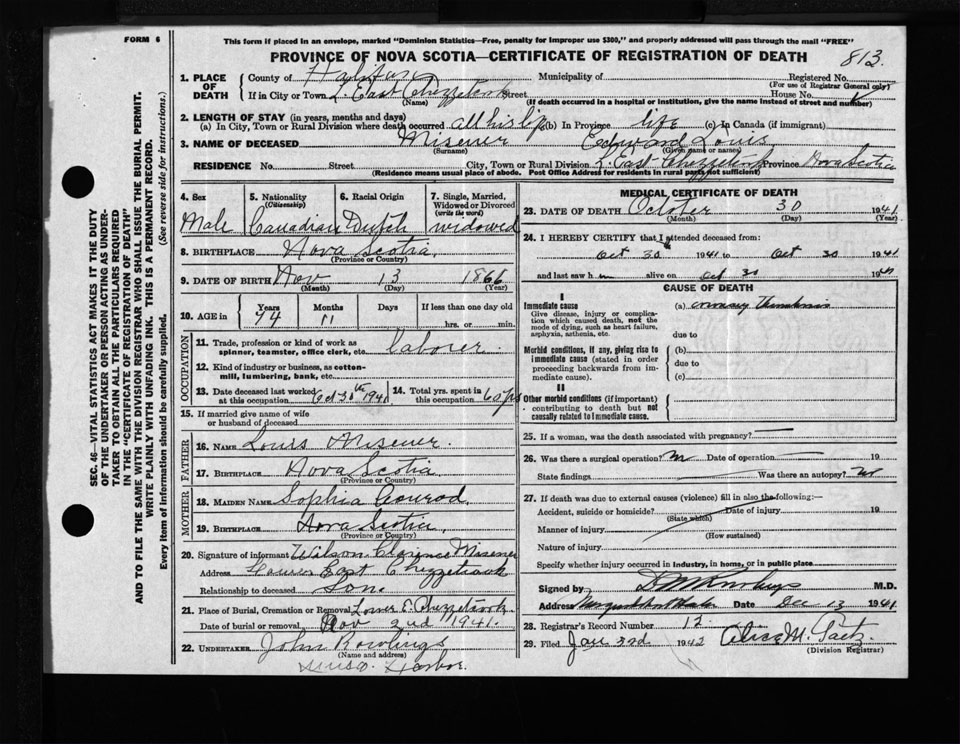 FORM 6
This form if placed in an envelope, marked "Dominion Statistics—Free, penalty for improper use $300," and properly addressed will pass through the mail "FREE"
PROVINCE OF NOVA SCOTIA—CERTIFICATE OF REGISTRATION OF DEATH
813
SEC. 46—VITAL STATISTICS ACT MAKES IT THE DUTY
OF THE UNDERTAKER OR PERSON ACTING AS UNDER-
TAKER TO OBTAIN ALL THE PARTICULARS REQUIRED
IN THE "CERTIFICATE OF REGISTRATION OF DEATH"
AND TO FILE THE SAME WITH THE DIVISION REGISTRAR WHO SHALL ISSUE THE BURIAL PERMIT.
WRITE PLAINLY WITH UNFADING INK. THIS IS A PERMANENT RECORD.
Every item of information should be carefully supplied. (See reverse side for instructions.)
1. PLACE OF DEATH
County of Halifax Municipality of Registered No.
(For use of Registrar General only)
If in City or Town L. East Chezzetcook Street House No.
(Name) (If death occurred in a hospital or institution, give the name instead of street and number)
2. LENGTH OF STAY (in years, months and days)
(a) In City, Town or Rural Division where death occurred all his life (b) In Province life (c) In Canada (if immigrant)
3. NAME OF DECEASED Misener Edward Louis
(Surname) (Given name or names)
RESIDENCE No. Street City, Town or Rural Division L. East Chezzetcook Province Nova Scotia
(Residence means usual place of abode. Post Office Address for residents in rural parts not sufficient)
4. Sex 5. Nationality (Citizenship) 6. Racial Origin 7. Single, Married, Widowed or Divorced (write the word)
Male Canadian Dutch widowed
8. BIRTHPLACE Nova Scotia
(Province or Country)
9. DATE OF BIRTH Nov 13 1866
(Month) (Day) (Year)
10. AGE in Years Months Days If less than one day old
74 11 hrs. or min.
OCCUPATION
11. Trade, profession or kind of work as
spinner, teamster, office clerk, etc. laborer
12. Kind of industry or business, as cotton-
mill, lumbering, bank, etc.
13. Date deceased last worked at this occupation Oct 30th 1941 14. Total yrs. spent in this occupation
15. If married give name of wife
or husband of deceased
FATHER
16. NAME Louis Misener
17. BIRTHPLACE Nova Scotia
(Province or Country)
MOTHER
18. MAIDEN NAME Sophia Conrod
19. BIRTHPLACE Nova Scotia
(Province or Country)
20. Signature of informant Wilson Clarence Misener
Address Lower East Chezzetcook
Relationship to deceased Son.
21. Place of Burial, Cremation or Removal Lower E. Chezzetcook
Date of burial or removal Nov 2nd 1941.
22. UNDERTAKER John Rowlings
(Name and address)
Musq. Harbor
MEDICAL CERTIFICATE OF DEATH
23. DATE OF DEATH October 30 1941
(Month) (Day) (Year)
24. I HEREBY CERTIFY that I attended deceased from:
Oct 30 1941 to Oct 30 1941
and last saw him alive on Oct 30 1941
CAUSE OF DEATH
I
Immediate cause (a) coronary thrombosis
Give disease, injury or complica-
tion which caused death, not the
mode of dying, such as heart failure,
asphyxia, asthenia, etc. due to
Morbid conditions, if any, giving rise to (b)
immediate cause (stated in order due to
proceeding backwards from im-
mediate cause). (c)
II
Other morbid conditions (if important)
contributing to death but not
causally related to immediate cause.
25. If a woman, was the death associated with pregnancy?
26. Was there a surgical operation? no Date of operation 19
State findings Was there an autopsy? no
27. If death was due to external causes (violence) fill in also the following:—
Accident, suicide or homicide? Date of injury 19
(State which)
Manner of injury
(How sustained)
Nature of injury
Specify whether injury occurred in industry, in home, or in public place
Signed by M.D.
Address Date Dec 13 1941
28. Registrar's Record Number 12
29. Filed Jan 3rd 1942 Alice M.
(Division Registrar)